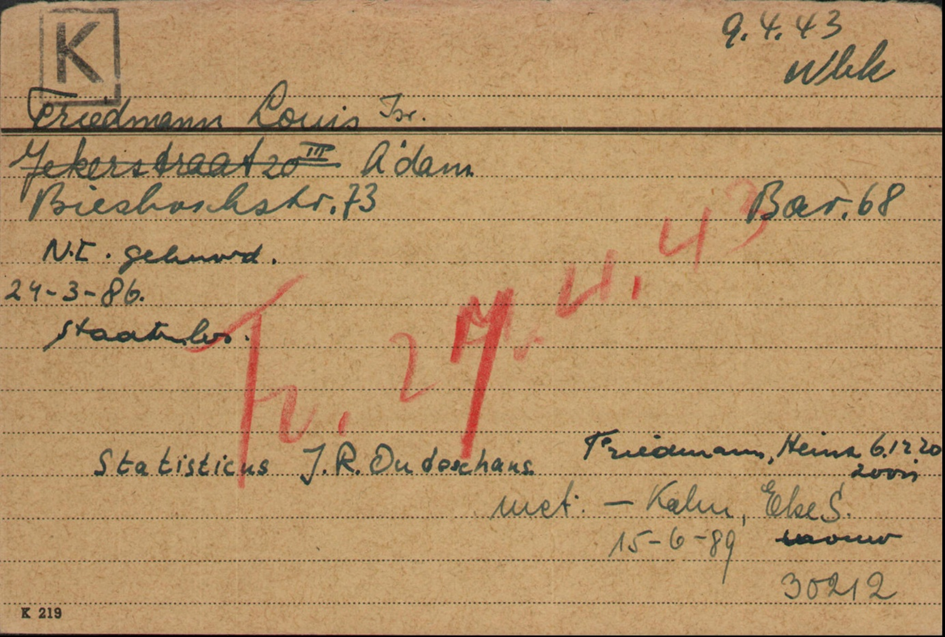 K
9.4.43
Wbk
Friedmann Louis Isr.
Jekerstraat 20 III A'dam
Biesboschstr. 73
Bar. 68
N.I. gehuwd.
24-3-86.
staatenlos.
Tr. 27.4.43
Statisticus J.R. Oudeschans
Friedmann, Heinz 6.12.20
zoon
met: - Kahn, Else S.
15-6-89 vrouw
30212
K 219